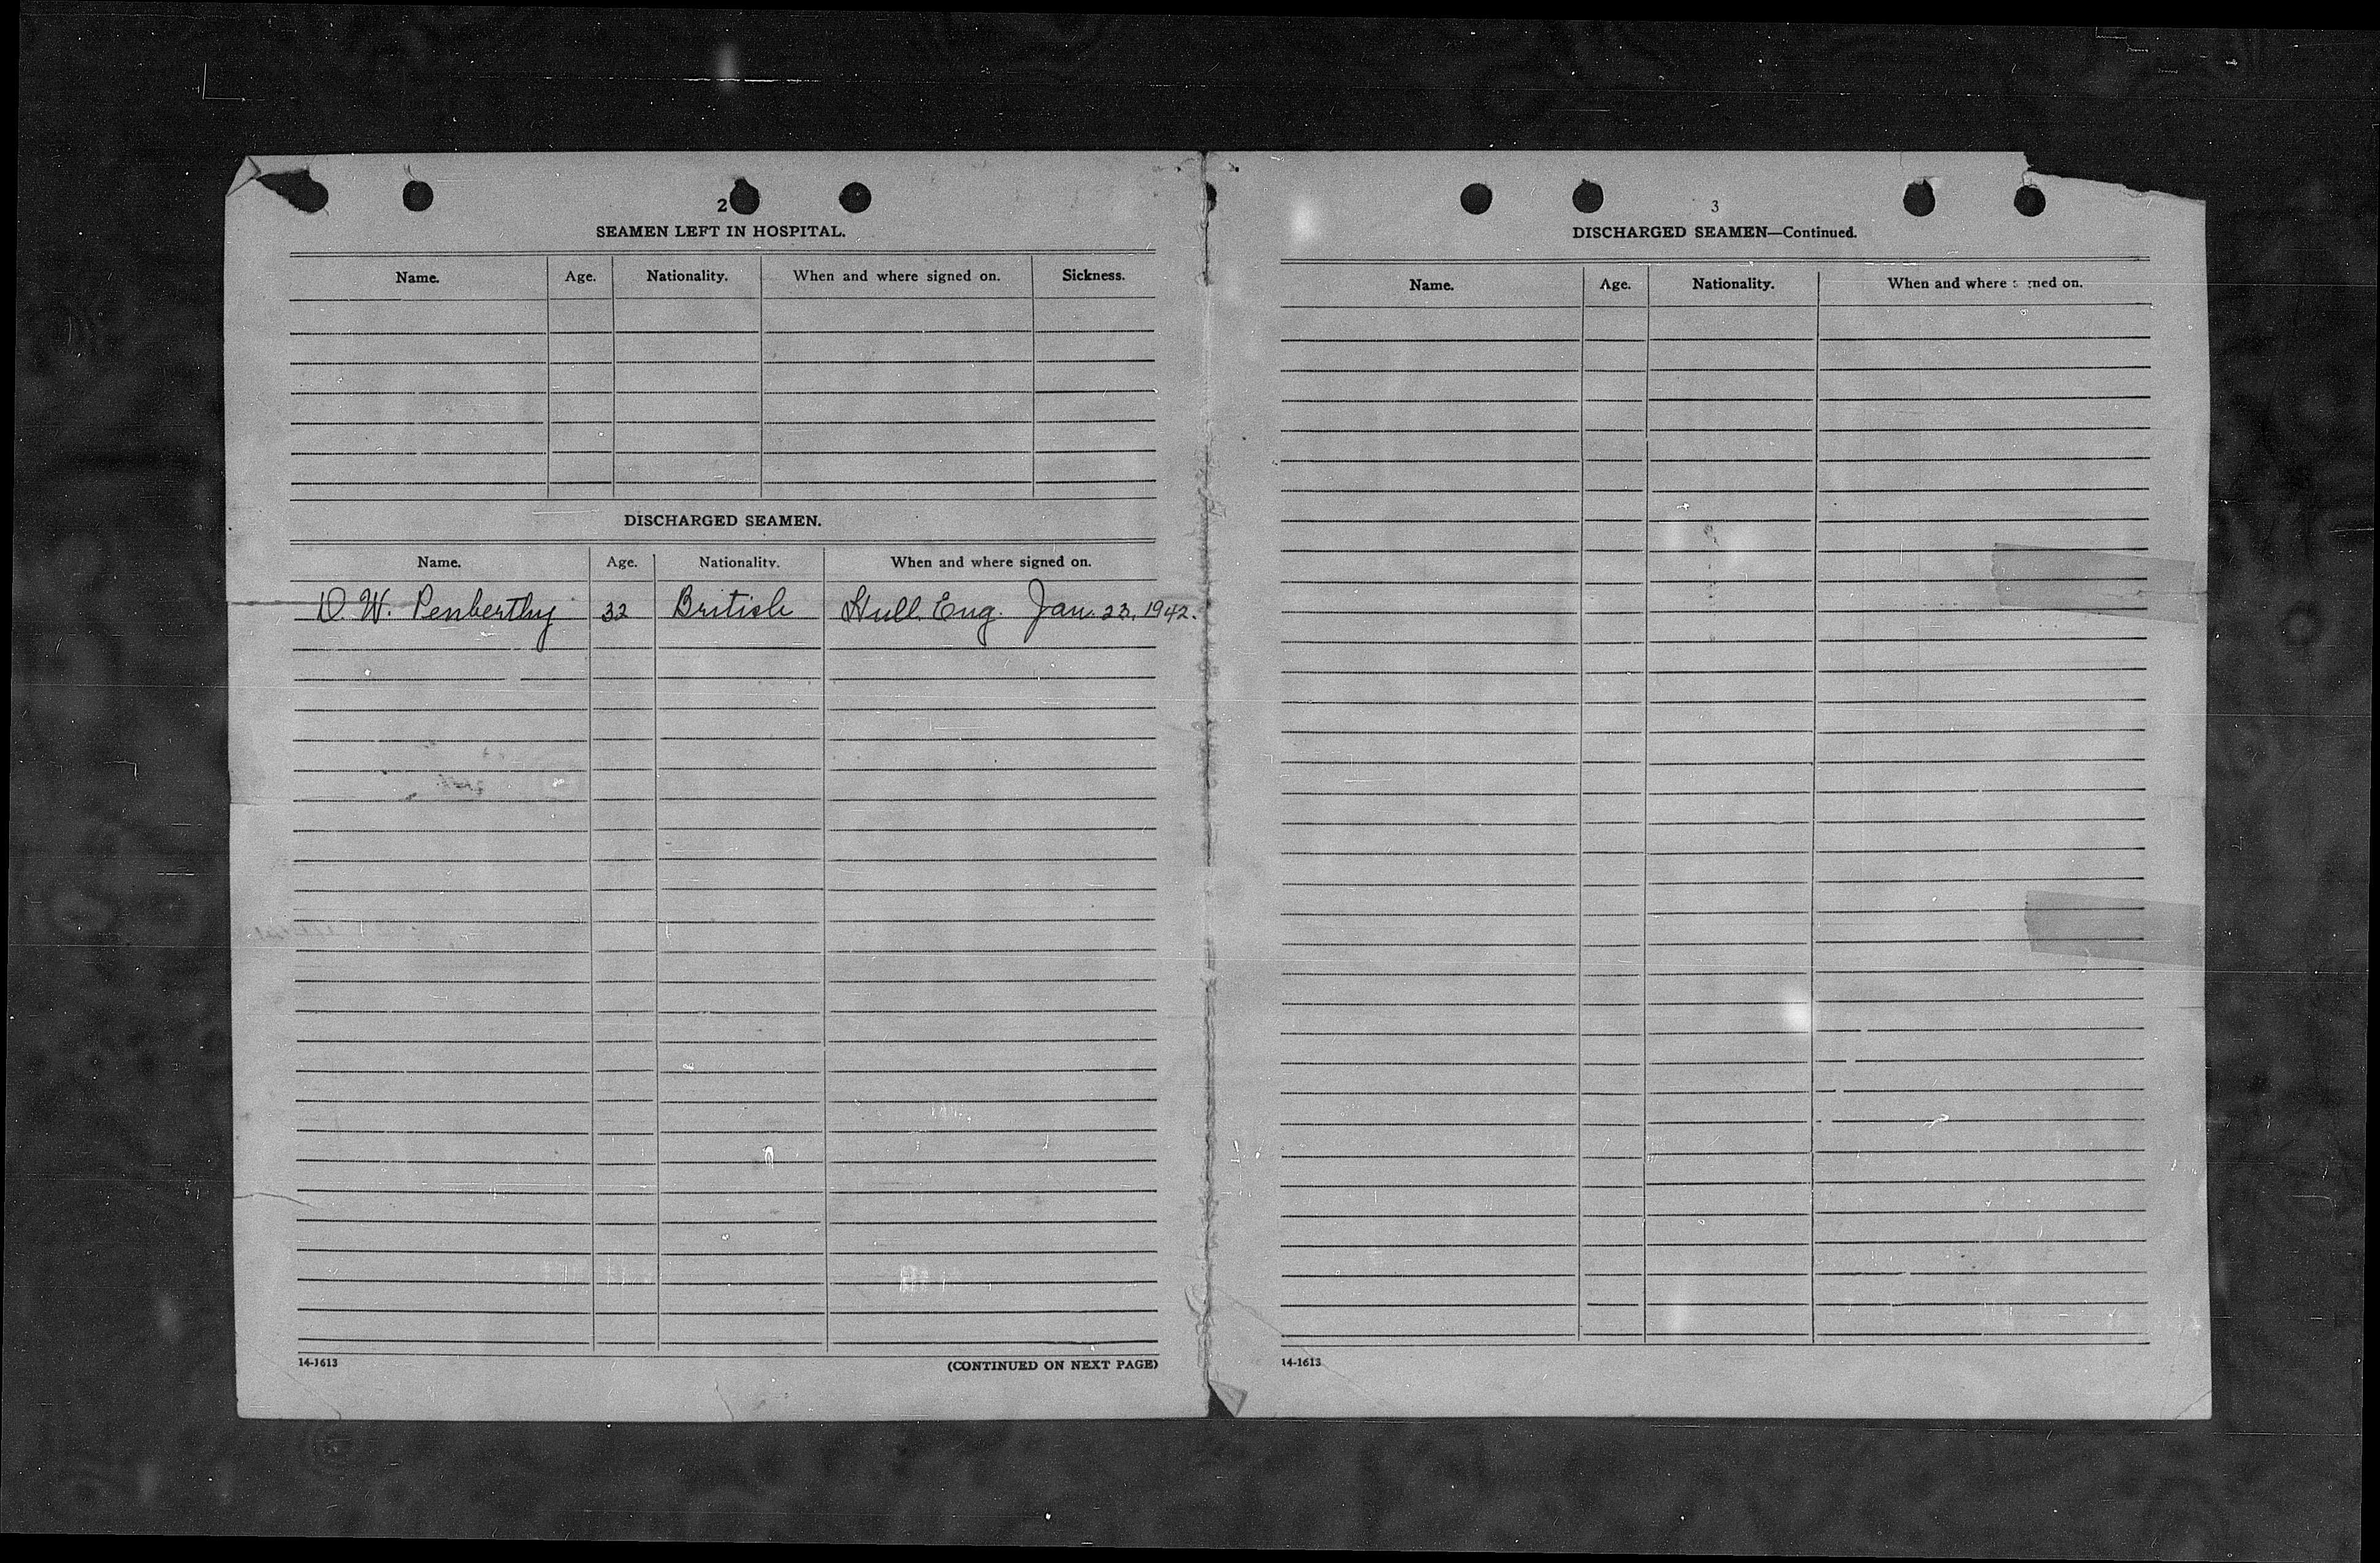 2
SEAMEN LEFT IN HOSPITAL.
Name. Age. Nationality. When and where signed on. Sickness.
DISCHARGED SEAMEN.
Name. Age. Nationality. When and where signed on.
D. W. Penberthy 32 British Hull. Eng. Jan. 23, 1942.
14-1613 (CONTINUED ON NEXT PAGE)
3
DISCHARGED SEAMEN—Continued.
Name. Age. Nationality. When and where med on.
14-1613